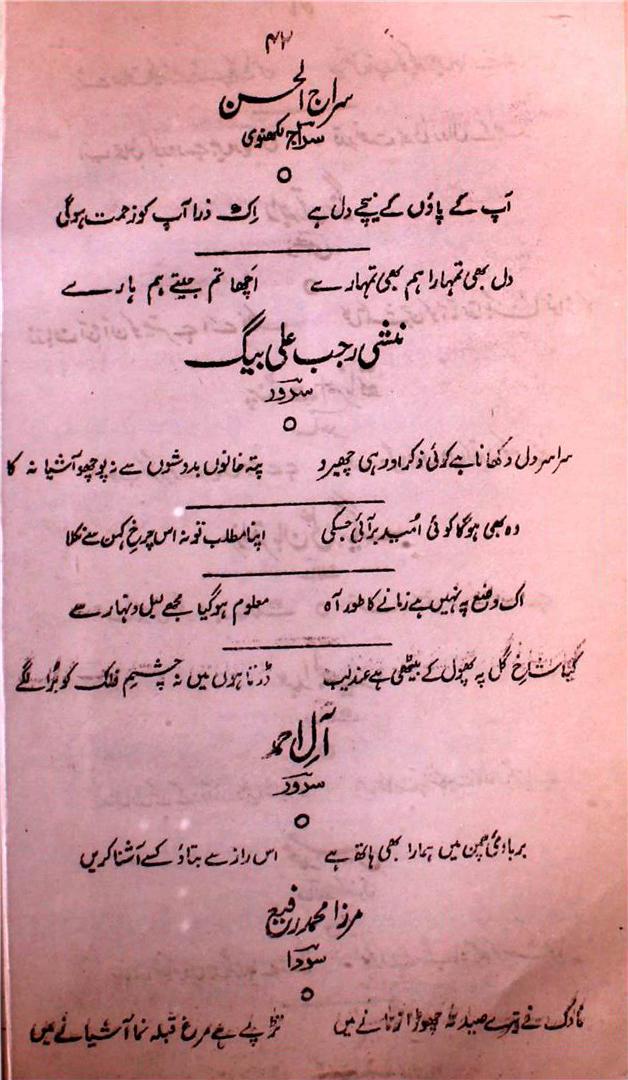 ۴۳
سراج الحسن
سراج لکھنوی
آپ کے پاؤں کے نیچے دل ہے اِک ذرا آپ کو زحمت ہوگی
دل بھی تمہارا ہم بھی تمہارے اچھا تم جیتے ہم ہارے
منشی رجب علی بیگ
سرور
سراسر دل دکھانا ہے کوئی ذکر اور ہی چھیڑو پتہ خانوں بدوشوں سے نہ پوچھو آشیانہ کا
وہ بھی ہوگا کوئی امید بر آئی جسکی اپنا مطلب تو نہ اس چرخِ کہن سے نکلا
اک وضع پہ نہیں ہے زمانے کا طور آہ معلوم ہوگیا مجھے لیل و نہار سے
کیا شاخِ گل پہ پھول کے بیٹھی ہے عندلیب ڈرتا ہوں میں نہ چشمِ فلک کو بُرا لگے
آلِ احمد
سرور
بربادیٔ چمن میں ہمارا بھی ہاتھ ہے اس راز سے بتاؤ کسے آشنا کریں
مرزا محمد رفیع
سودا
ناوک نے تیرے صید نہ چھوڑا زمانے میں تڑپے ہے مرغ قبلہ نما آشیانے میں